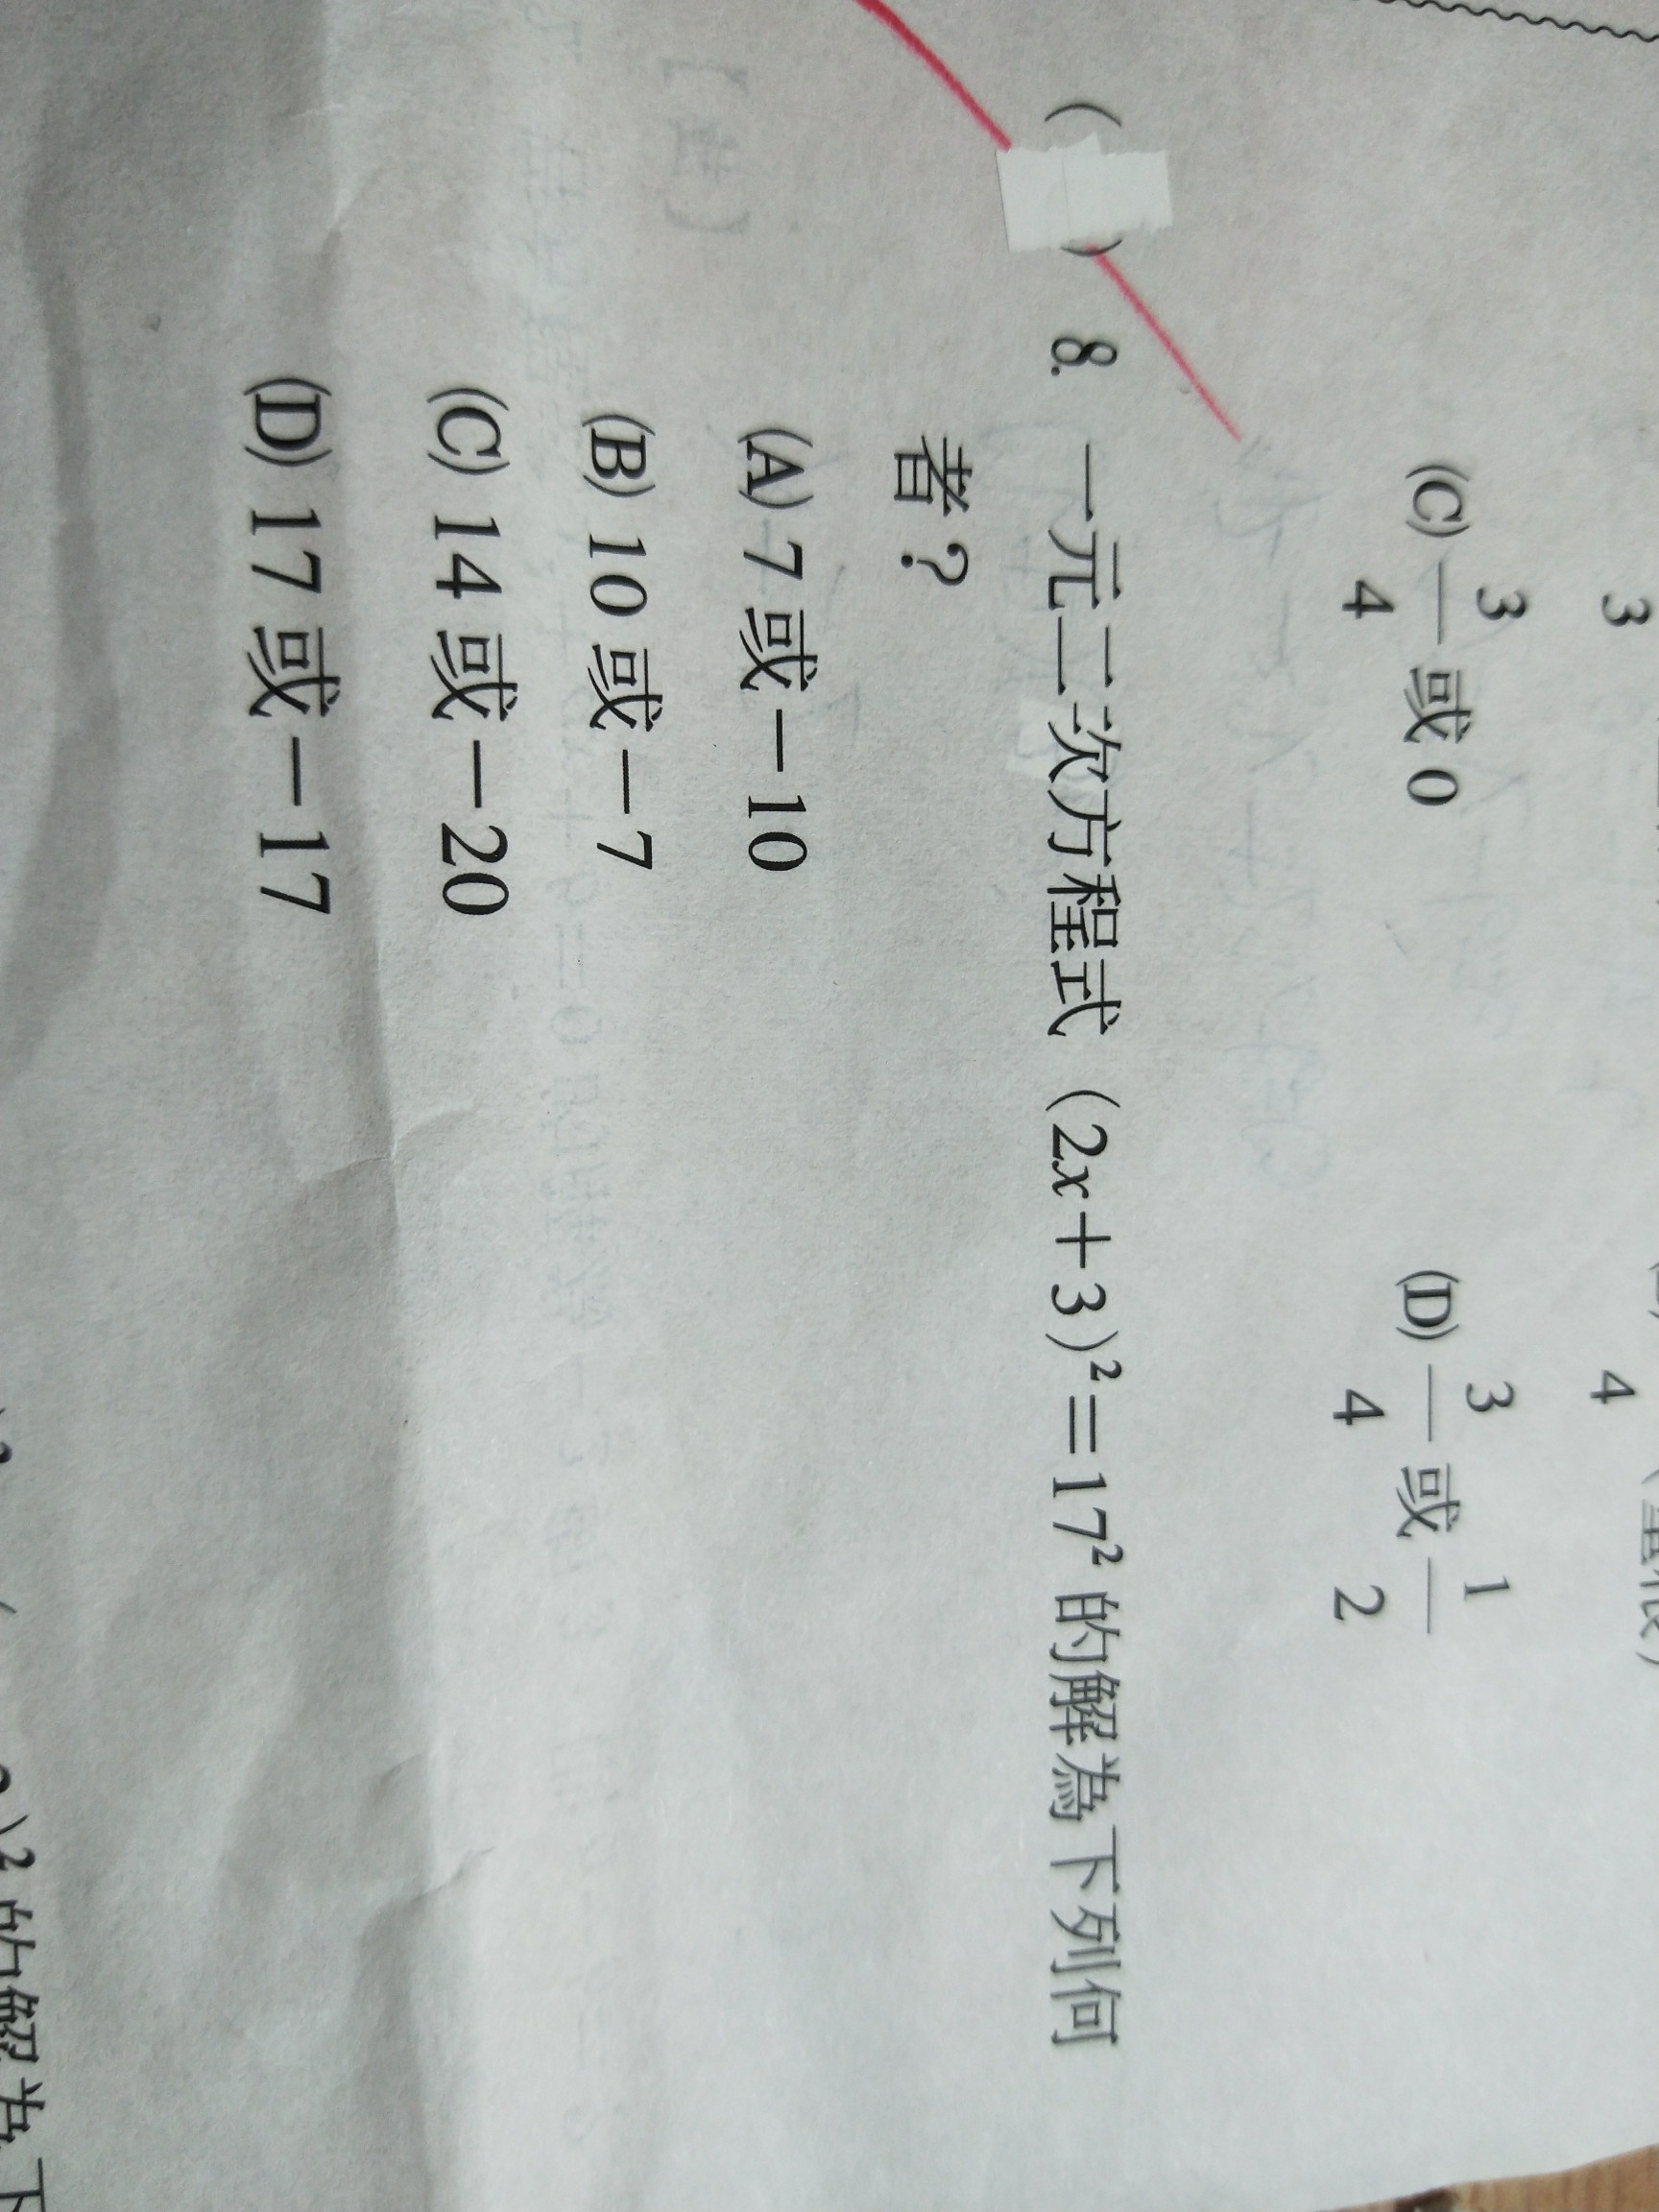 3
4
(C) 3/4 或 0 (D) 3/4 或 1/2
( ) 8. 一元二次方程式 (2x+3)²=17² 的解為下列何
者？
(A) 7 或 −10
(B) 10 或 −7
(C) 14 或 −20
(D) 17 或 −17
)² 的解為下